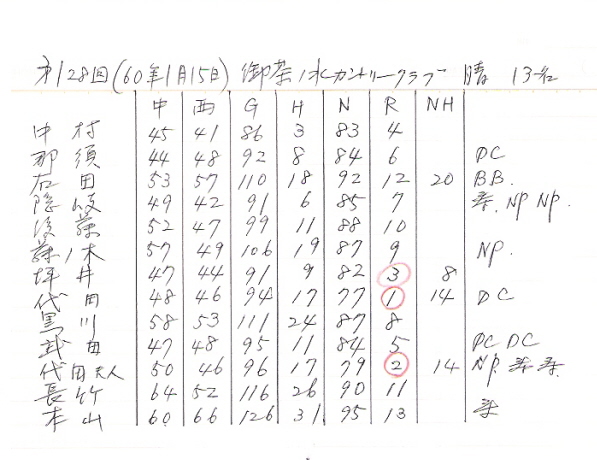 第128回(60年1月15日) 御茶ノ水カントリークラブ 晴 13名
中 西 G H N R NH
中村 45 41 86 3 83 4
那須 44 48 92 8 84 6 DC
石田 53 57 110 18 92 12 20 BB.
隠岐 49 42 91 6 85 7 NP NP.
後藤 52 47 99 11 88 10
藤ノ木 57 49 106 19 87 9 NP.
坪井 47 44 91 9 82 3 8
代田 48 46 94 17 77 1 14 DC
黒川 58 53 111 24 87 8
武田 47 48 95 11 84 5 DC DC
代田夫人 50 46 96 17 79 2 14 NP.
長竹 64 52 116 26 90 11
本山 60 66 126 31 95 13